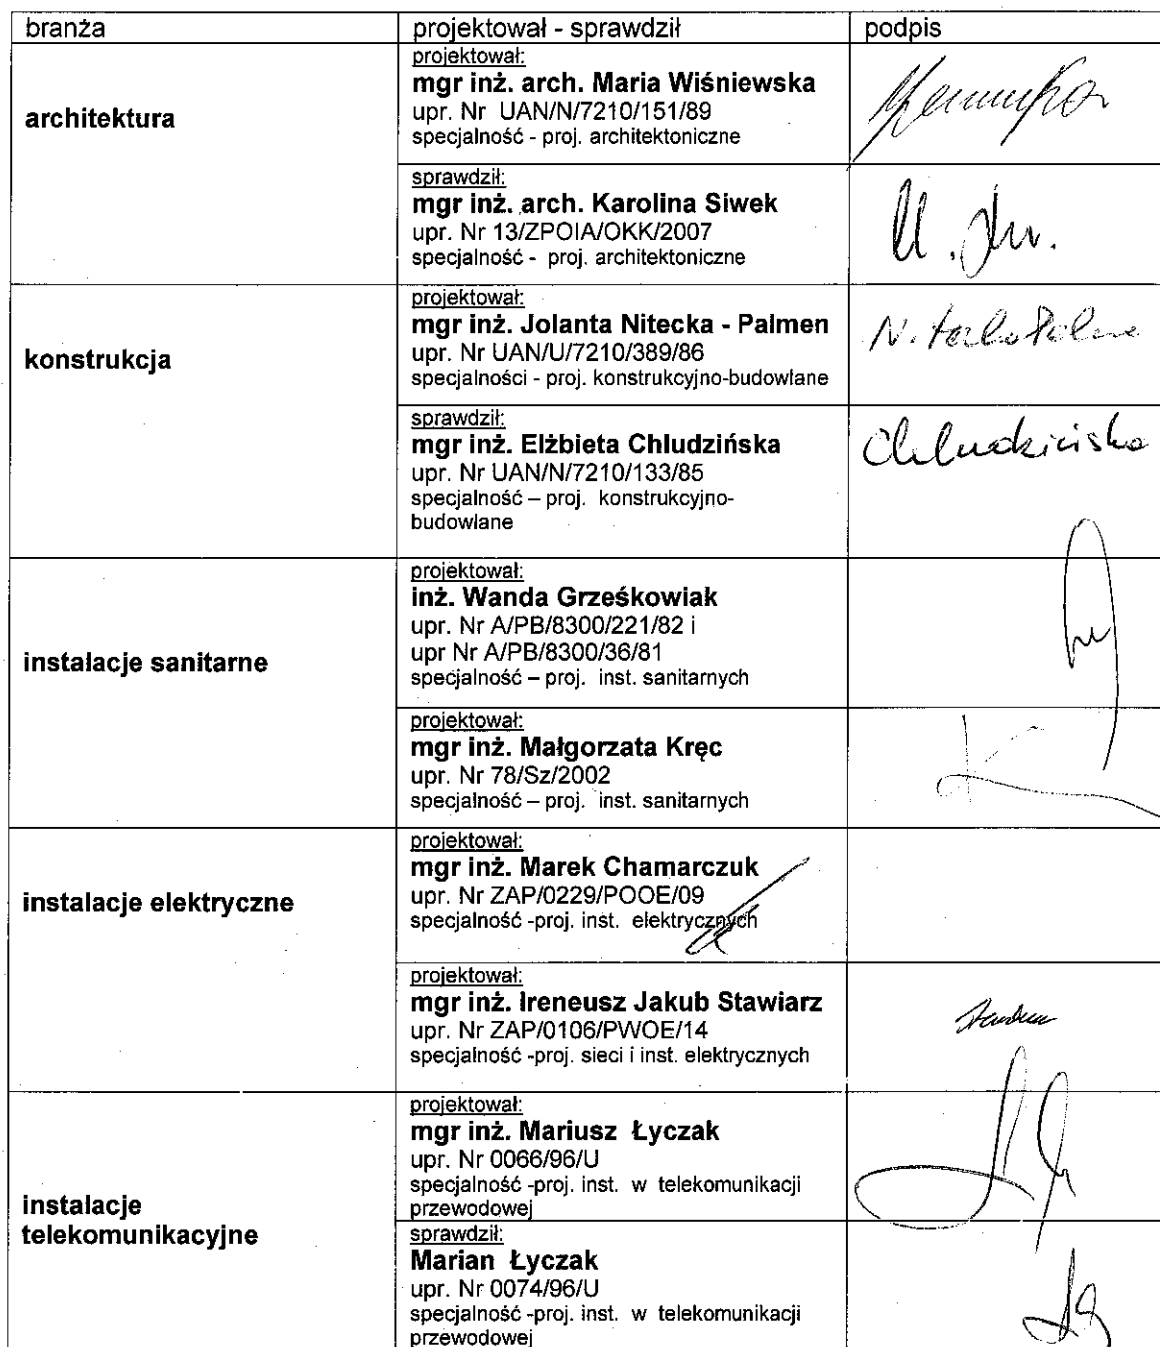 branża projektował - sprawdził podpis
architektura
projektował:
mgr inż. arch. Maria Wiśniewska
upr. Nr UAN/N/7210/151/89
specjalność - proj. architektoniczne
sprawdził:
mgr inż. arch. Karolina Siwek
upr. Nr 13/ZPOIA/OKK/2007
specjalność - proj. architektoniczne
konstrukcja
projektował:
mgr inż. Jolanta Nitecka - Palmen
upr. Nr UAN/U/7210/389/86
specjalności - proj. konstrukcyjno-budowlane
sprawdził:
mgr inż. Elżbieta Chludzińska
upr. Nr UAN/N/7210/133/85
specjalność – proj. konstrukcyjno-
budowlane
Chludzińska
instalacje sanitarne
projektował:
inż. Wanda Grześkowiak
upr. Nr A/PB/8300/221/82 i
upr Nr A/PB/8300/36/81
specjalność – proj. inst. sanitarnych
projektował:
mgr inż. Małgorzata Kręc
upr. Nr 78/Sz/2002
specjalność – proj. inst. sanitarnych
instalacje elektryczne
projektował:
mgr inż. Marek Chamarczuk
upr. Nr ZAP/0229/POOE/09
specjalność -proj. inst. elektrycznych
projektował:
mgr inż. Ireneusz Jakub Stawiarz
upr. Nr ZAP/0106/PWOE/14
specjalność -proj. sieci i inst. elektrycznych
instalacje
telekomunikacyjne
projektował:
mgr inż. Mariusz Łyczak
upr. Nr 0066/96/U
specjalność -proj. inst. w telekomunikacji
przewodowej
sprawdził:
Marian Łyczak
upr. Nr 0074/96/U
specjalność -proj. inst. w telekomunikacji
przewodowej